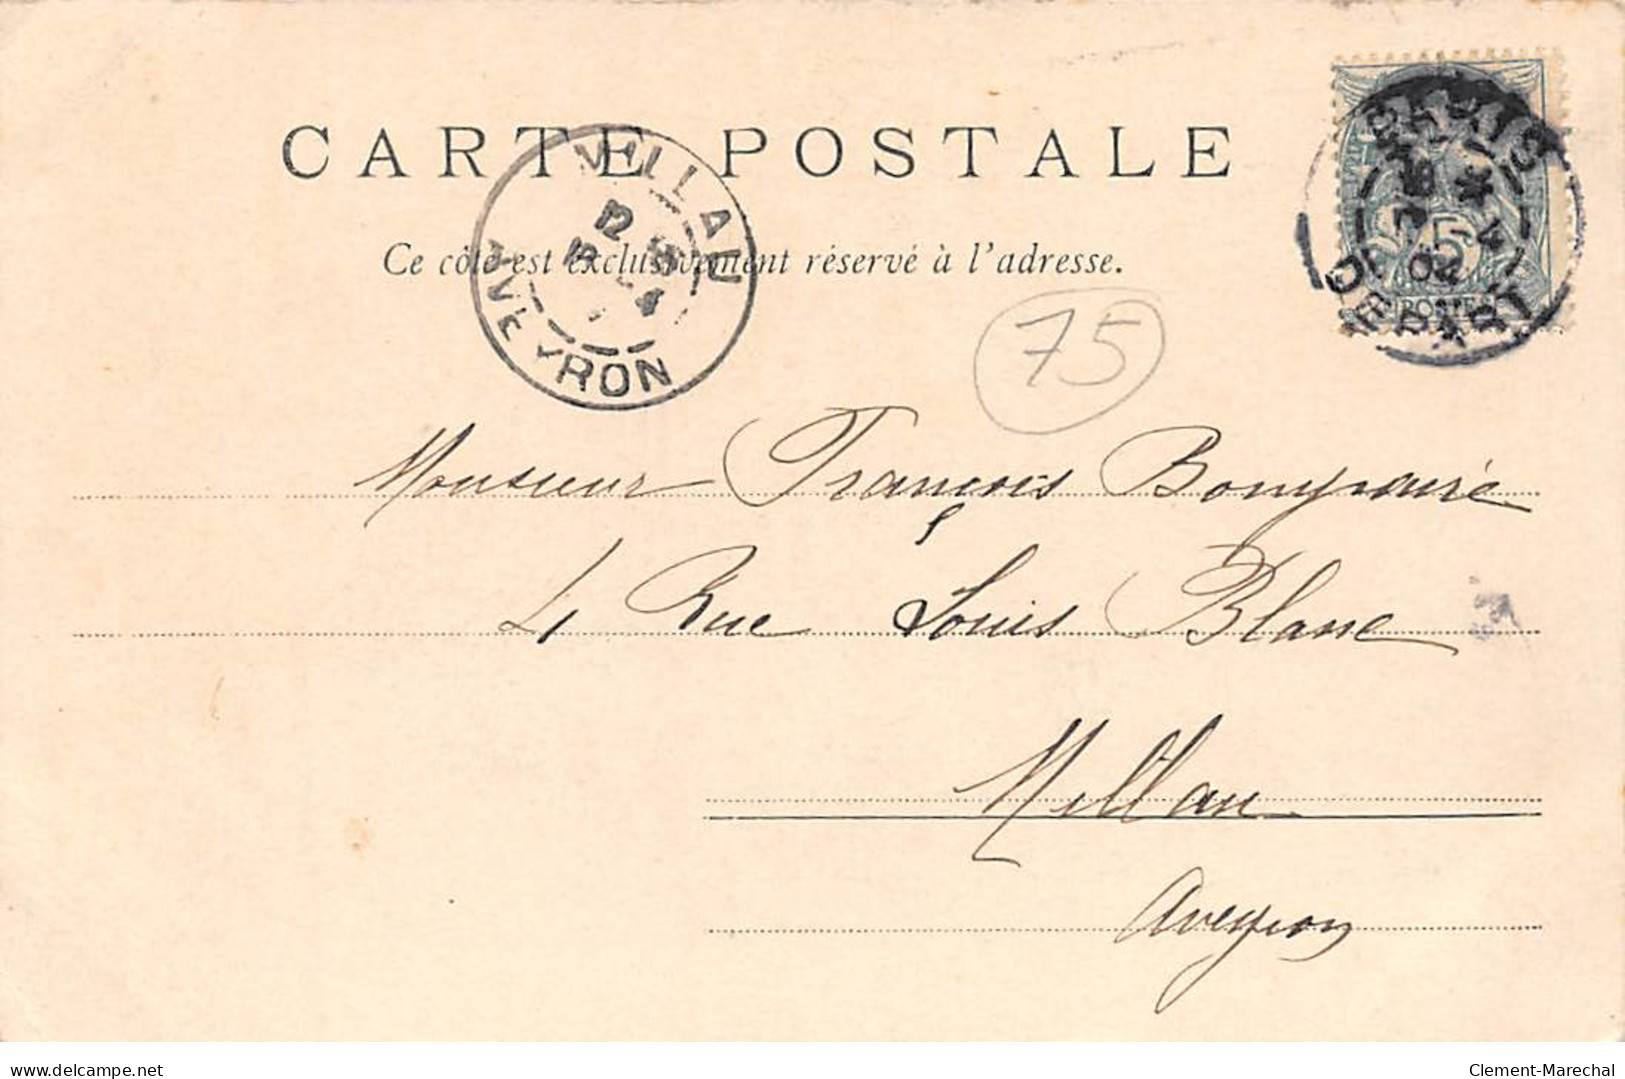 CARTE POSTALE
Ce côté est exclusivement réservé à l'adresse.
MILLAU
12
AVEYRON
PARIS
04
DEPART
5
POSTES
75
Monsieur François Bompaire
4 Rue Louis Blanc
Millau
Aveyron
delcampe.net
Clement-Marechal